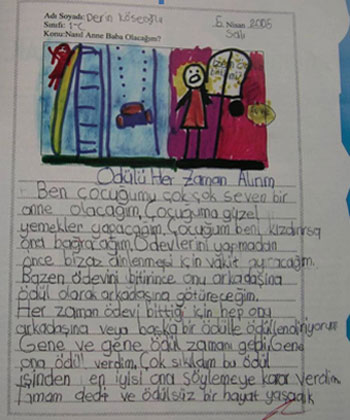 Adı Soyadı: Derin Köseoğlu
6 Nisan 2006
Sınıfı: 1-C
Salı
Konu: Nasıl Anne Baba Olacağım?
Ödülü Her Zaman Alırım
Ben çocuğumu çok şok seven bir
anne olacağım. Çocuğuma güzel
yemekler yapacağım. Çocuğum beni kızdırırsa
ona bağıracağım. Ödevlerini yapmadan
önce biraz dinlenmesi için vakit ayıracağım.
Bazen ödevini bitirince onu arkadaşına
ödül olarak arkadaşına götüreceğim.
Her zaman ödevi bittiği için hep onu
arkadaşına veya başka bir ödülle ödüllendiriyorum
Gene ve gene ödül zamanı geldi. Gene
ona ödül verdim. Çok sıkıldım bu ödül
işinden en iyisi ona söylemeye karar verdim
tamam dedi ve ödülsüz bir hayat yaşadık